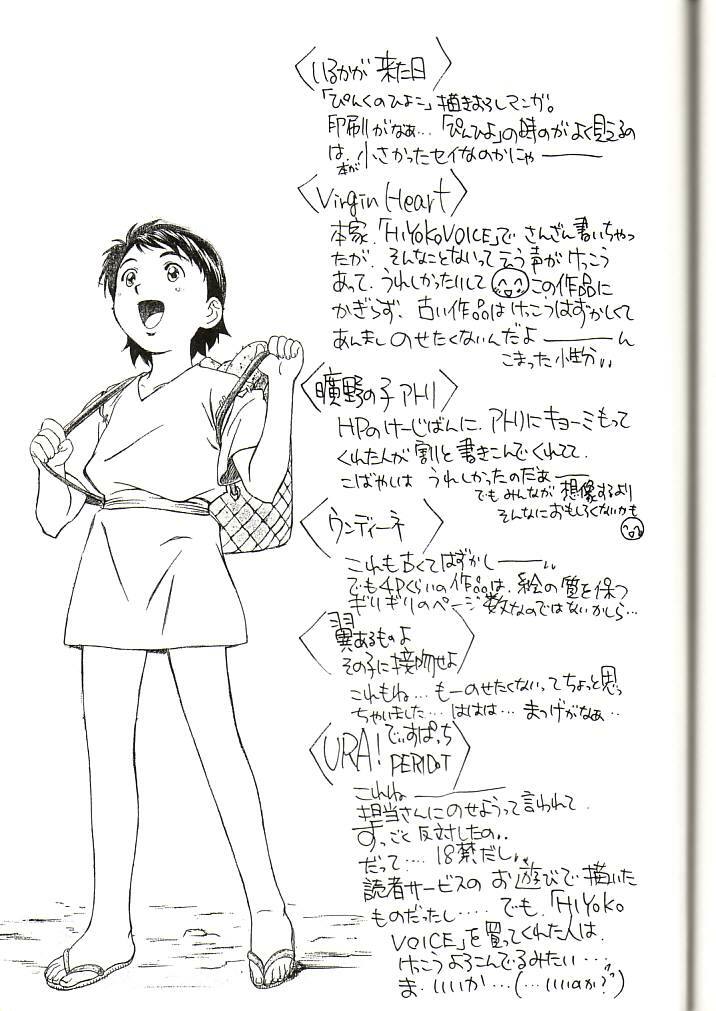 〈いるかが 来た日〉
「ぴんくのひよこ」描きおろしマンガ。
印刷がなぁ…「ぴんひよ」の時のがよく見えるの
は、本が小さかったセイなのかにゃーーー
〈Virgin Heart〉
本家、「HiYoKoVOICE」で さんざん書いちゃっ
たが、そんなことないって言う声が けっこう
あって、うれしかったりして この作品に
かぎらず、古い作品は けっこうはずかしくて
あんまし のせたくないんだよーーーん
こまった性分、、
〈曠野の子 アハリ〉
HPのけーじばんに、アハリにキョーミもって
くれた人が 割と 書きこんでくれてて、
こばやしは うれしかったのだぁーー
でも みんなが 想像するより
そんなにおもしろくないかも
〈ウンディーネ〉
これも古くてはずかしーーー、、
でも4Pくらいの作品は、絵の質を保つ
ギリギリのページ数なのではないかしら…
〈翼あるものよ
その子に接吻せよ〉
これもね… もーのせたくないってちょっと思っ
ちゃいました… ははは… まつげがなぁ‥
〈URA! でぃすぱっち
PERIDOT〉
これねーーー
担当さんにのせようって言われて、
すっごく 反対したの、、
だって…. 18禁だし、、
読者サービスの お遊びで 描いた
ものだったし…. でも、「HIYoKo
VOICE」を買ってくれた人は、
けっこう よろこんでるみたい…、
ま、いいか…(… いいのか?)